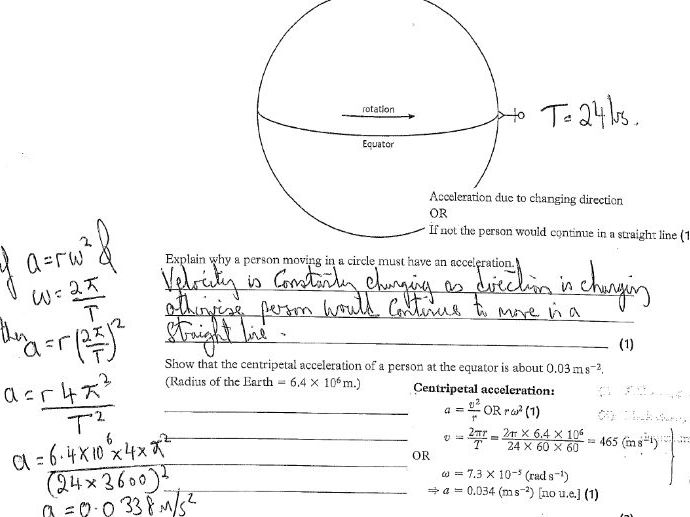 rotation
Equator
T = 24 hrs.
Acceleration due to changing direction
OR
If not the person would continue in a straight line (1
Explain why a person moving in a circle must have an acceleration.
Velocity is Constantly changing as direction is changing
otherwise person would Continue to move in a
Straight line.
(1)
Show that the centripetal acceleration of a person at the equator is about 0.03 m s⁻².
(Radius of the Earth = 6.4 × 10⁶ m.)
Centripetal acceleration:
a = v²/r OR r ω² (1)
v = 2πr/T = 2π × 6.4 × 10⁶/24 × 60 × 60 = 465 (m s⁻¹)
OR
ω = 7.3 × 10⁻⁵ (rad s⁻¹)
⇒ a = 0.034 (m s⁻²) [no u.e.] (1)
if a = rω² &
ω = 2π/T
then a = r (2π/T)²
a = r 4π²/T²
a = 6.4 × 10⁶ × 4 × π²/(24 × 3600)²
a = 0.0338 m/s²